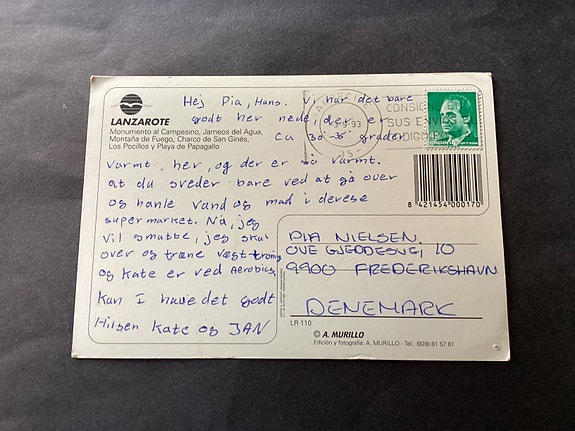 LANZAROTE
Monumento al Campesino, Jameos del Agua,
Montaña de Fuego, Charco de San Ginés,
Los Pocillos y Playa de Papagallo
Hej Pia, Hans. Vi har det bare
godt her nede, der er
Ca 30-35 grader
varmt her, og der er så varmt.
at du sveder bare ved at gå over
og hanle vand og mad i derese
supermarket. Nå, jeg
vil smutte, jeg skal
over og træne vægt-træning
og Kate er ved Aerobics.
Kan I have det godt
Hilsen Kate og JAN
CONSIGNE
SUS ENV
DIGO
93
45
ESPAÑA
CORREOS
8 421454 000170
PIA NIELSEN.
OVE GJEDDESVEJ 10
9900 FREDERIKSHAVN
DENEMARK
LR 110
© A. MURILLO
Edición y fotografía: A. MURILLO - Tel.: (928) 81 57 61